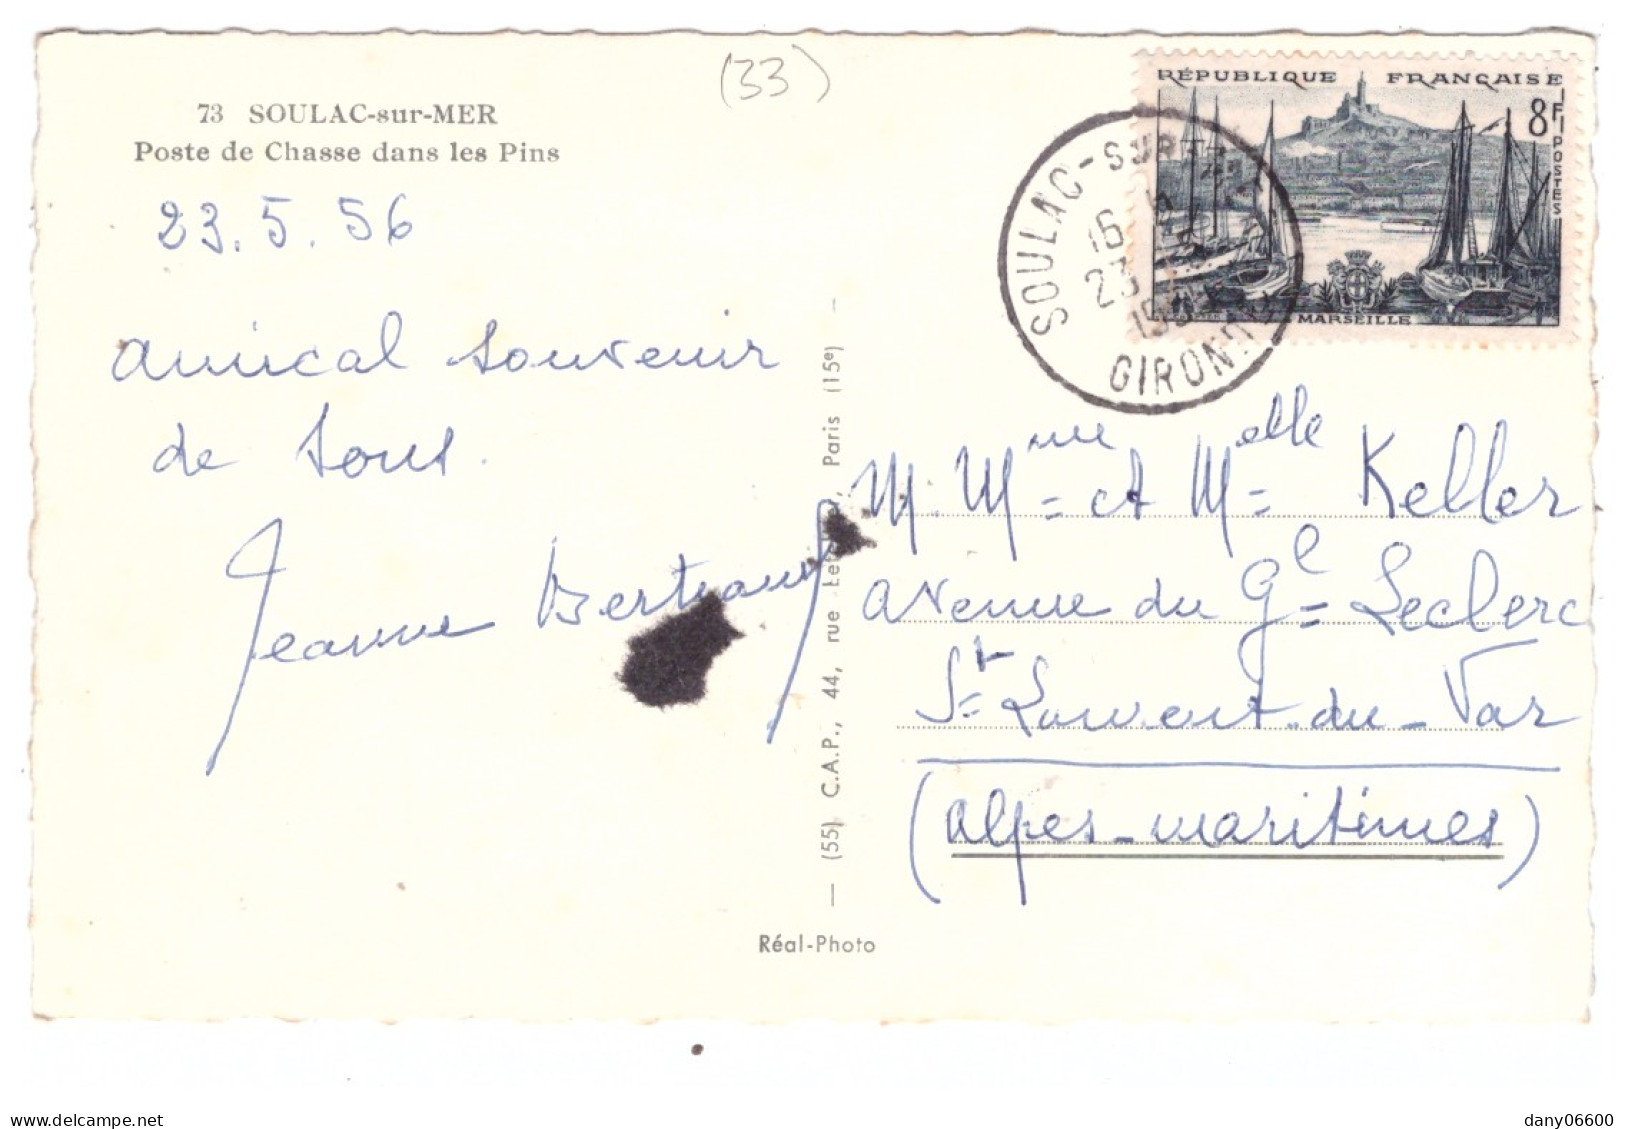 (33)
73 SOULAC-sur-MER
Poste de Chasse dans les Pins
23.5.56
amical souvenir
de tous.
Jeanne Bertrand
RÉPUBLIQUE FRANÇAISE
8F
POSTES
MARSEILLE
SOULAC-SUR-
16
23
GIRONDE
M. Mme et Melle Keller
avenue du Gl Leclerc
St Laurent-du-Var
(alpes-maritimes)
(55) C.A.P., 44, rue, Paris (15e)
Réal-Photo
delcampe.net
dany06600